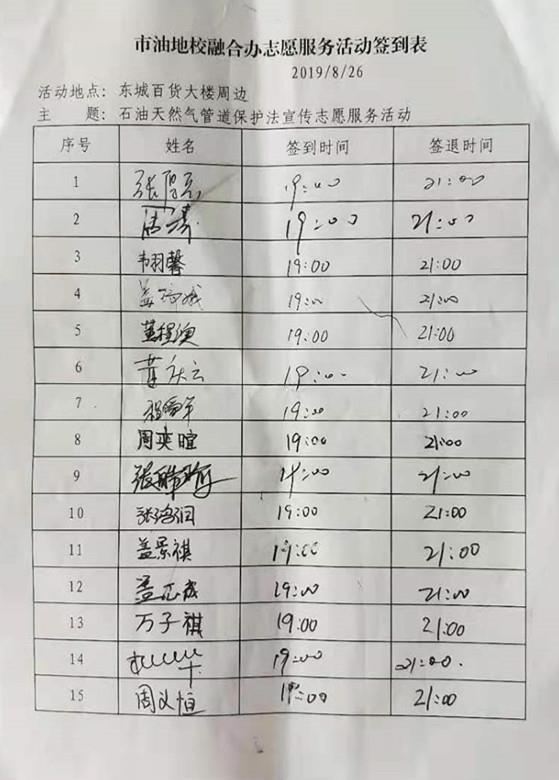 市油地校融合办志愿服务活动签到表
2019/8/26
活动地点：东城百货大楼周边
主 题：石油天然气管道保护法宣传志愿服务活动
序号 姓名 签到时间 签退时间
1 19:00 21:00
2 19:00 21:00
3 韦羽馨 19:00 21:00
4 19:00 21:00
5 19:00 21:00
6 19:00 21:00
7 19:00 21:00
8 周奕暄 19:00 21:00
9 19:00 21:00
10 19:00 21:00
11 盖景祺 19:00 21:00
12 19:00 21:00
13 万子祺 19:00 21:00
14 19:00 21:00.
15 周义恒 19:00 21:00